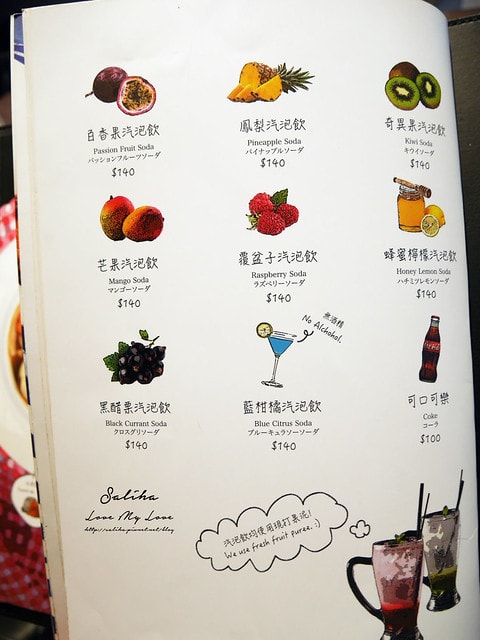 百香果汽泡飲
Passion Fruit Soda
パッションフルーツソーダ
$140
鳳梨汽泡飲
Pineapple Soda
パイナップルソーダ
$140
奇異果汽泡飲
Kiwi Soda
キウイソーダ
$140
芒果汽泡飲
Mango Soda
マンゴーソーダ
$140
覆盆子汽泡飲
Raspberry Soda
ラズベリーソーダ
$140
蜂蜜檸檬汽泡飲
Honey Lemon Soda
ハチミツレモンソーダ
$140
黑醋栗汽泡飲
Black Currant Soda
クロスグリソーダ
$140
無酒精
No Alchohol.
藍柑橘汽泡飲
Blue Citrus Soda
ブルーキュラソーソーダ
$140
可口可樂
Coke
コーラ
$100
Saliha
Love My Love
http://saliha.pixnet.net/blog
汽泡飲均使用現打果泥!
We use fresh fruit puree. :)